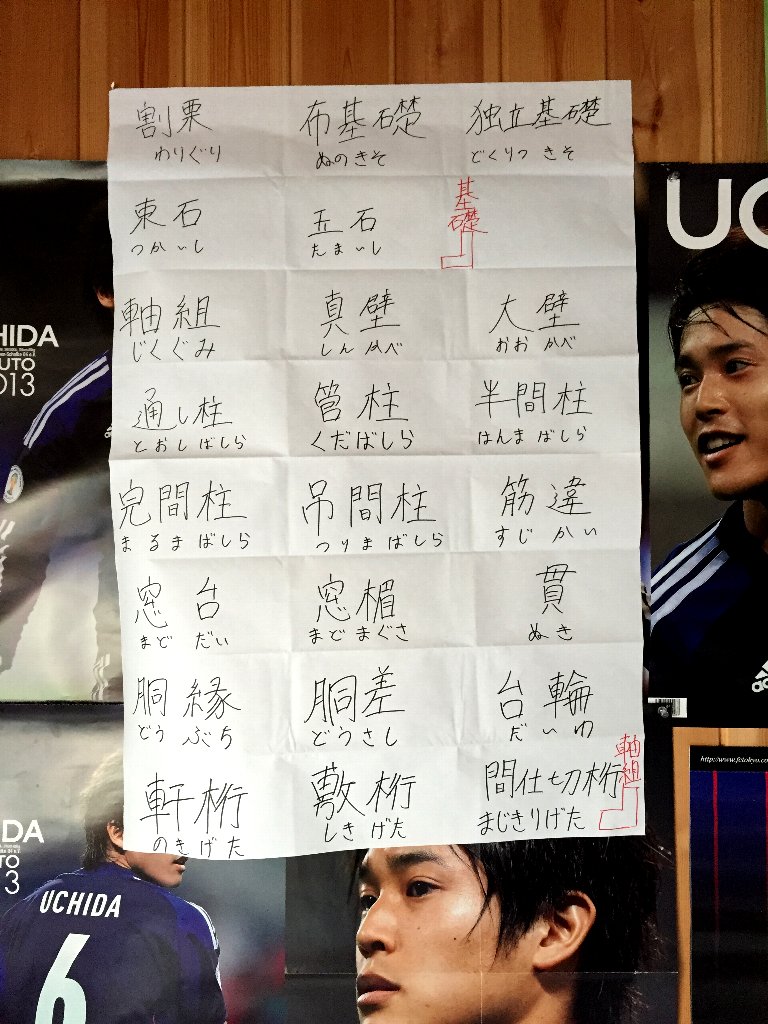 割栗 布基礎 独立基礎
わりぐり ぬのきそ どくりつ きそ
東石 五石 基礎
つかいし たまいし
軸組 真壁 大壁
じくぐみ しんかべ おおかべ
通し柱 管柱 半間柱
とおしばしら くだばしら はんまばしら
完間柱 吊間柱 筋違
まるまばしら つりまばしら すじかい
窓台 窓楣 貫
まどだい まどまぐさ ぬき
胴縁 胴差 台輪
どうぶち どうさし だいわ
軒桁 敷桁 間仕切桁 軸組
のきげた しきげた まじきりげた
UC
HIDA
UTO
2013
DA
TO
3
UCHIDA
6
http://www.fctokyo.co